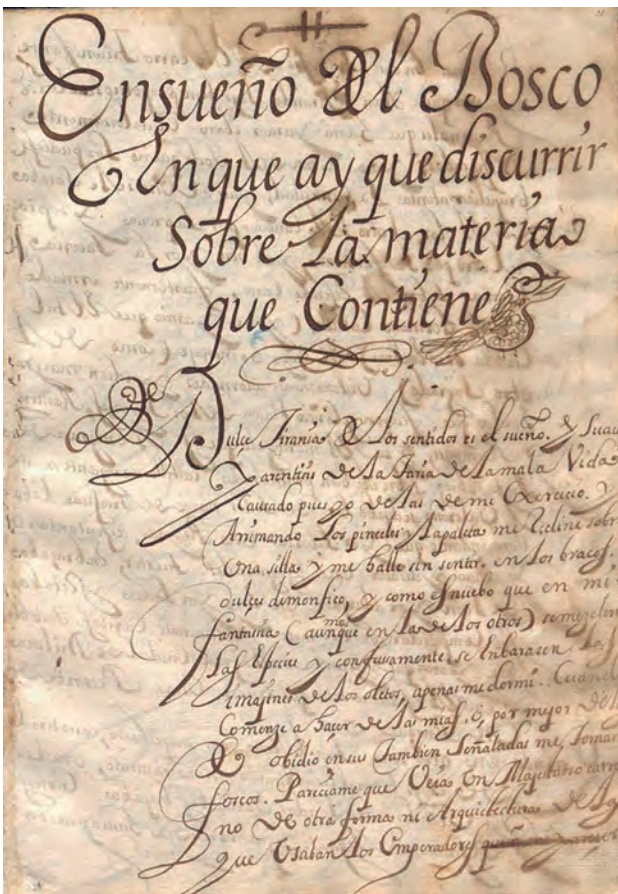 Ensueño del Bosco
En que ay que discurrir
Sobre la materia
que Contiene
Dulce Tirania de los sentidos es el sueño. y Suau
Parentisis de la de la mala Vida
Cansado pues yo de las de mi Exercicio. y
Arrimando los pinceles y la paleta me Recline sobr
Una silla y me halle sin sentir. en los braços.
dulces de y como es nuebo que en mi
fantasia (aunque mas en la de los otros) se mezclen
las Especies y confusamente se Enbarasen las
imagines de los obletos, apenas me dormi. Cuand
Comenze a hacer de las mias. o, por mejor de
obidio en sus Tambien Señaladas me, tomar
foscos. Pareciame que Veia Un Majestuoso carr
no de otra forma ni Arquitectura de
que Usaban los Emperadores que